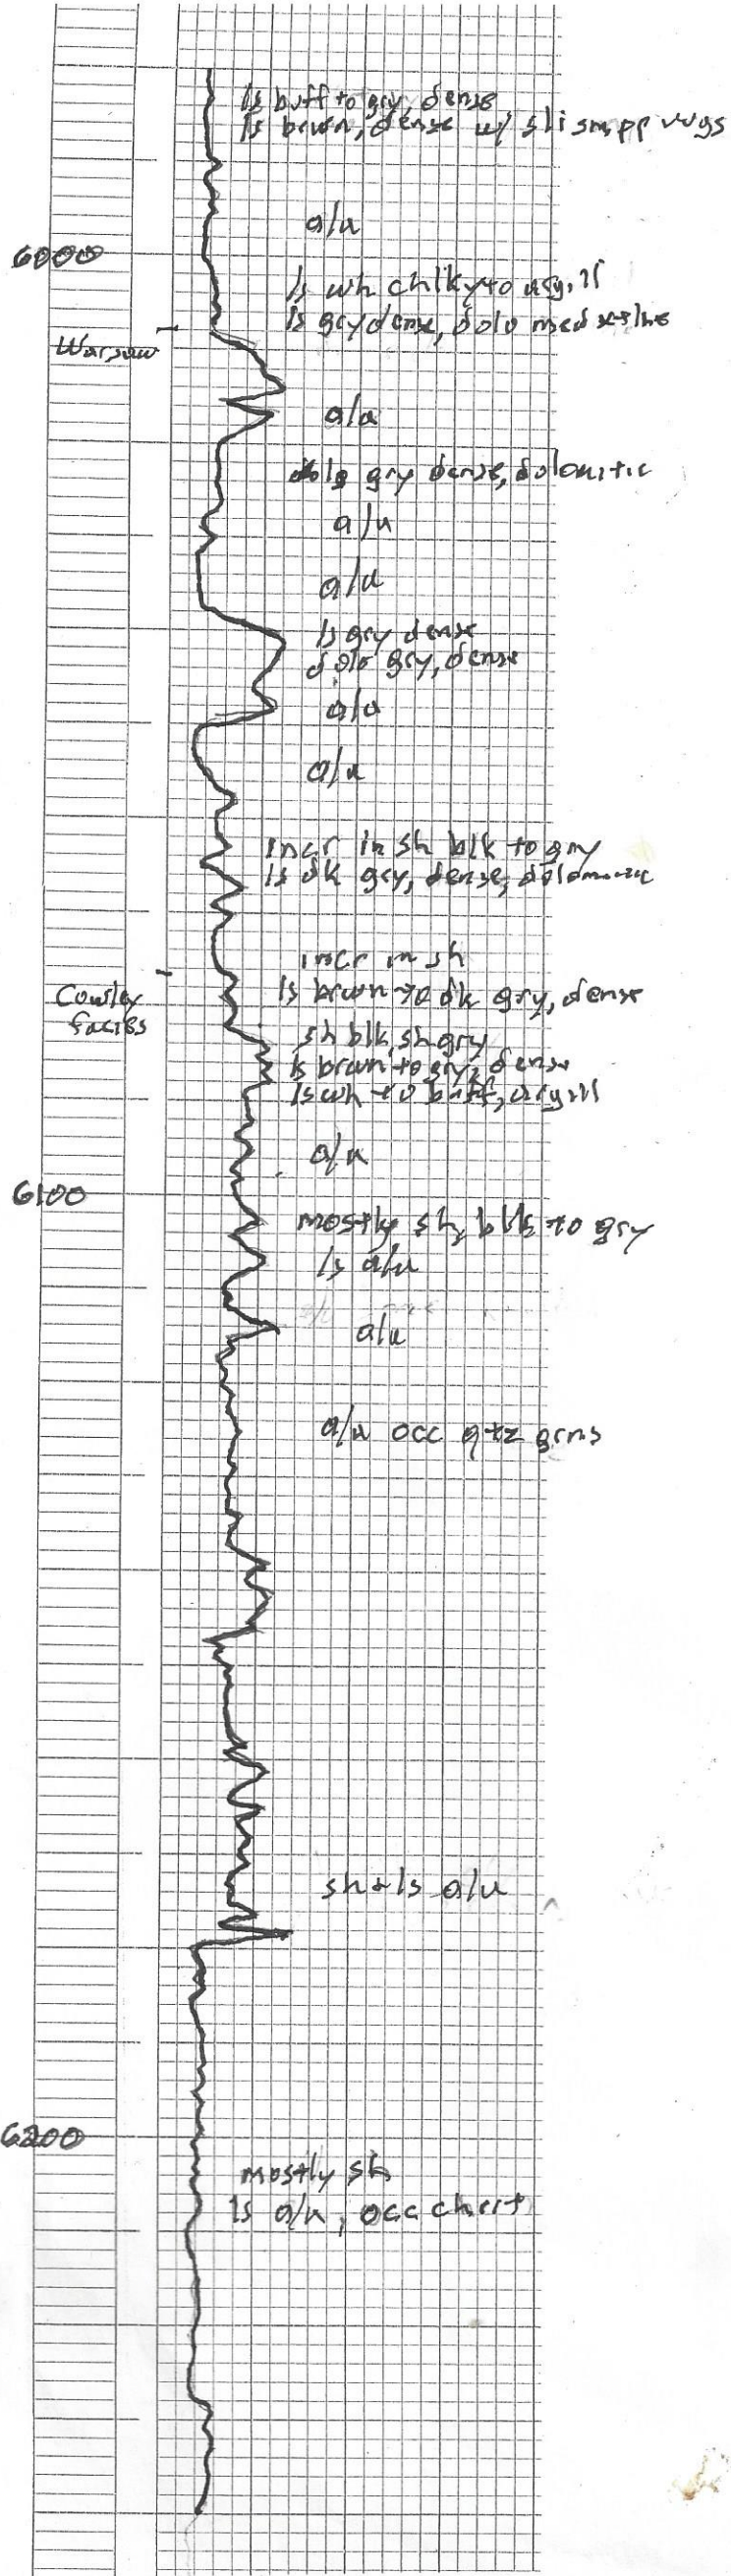 ls buff to gry, dense
ls brown, dense w/ sli sm pp vugs
a/a
6000
ls wh chlky to argill
ls gry dense, dolo med xtline
Warsaw
a/a
dolo gry dense, dolomitic
a/a
a/a
ls gry dense
dolo gry, dense
a/a
a/a
incr in sh blk to gry
ls dk gry, dense, dolomitic
incr in sh
ls brown to dk gry, dense
Cowley
facies
sh blk, sh gry
ls brown to gry, dense
ls wh to buff, argill
a/a
6100
mostly sh, blk to gry
ls a/a
a/a
a/a occ qtz grns
sh & ls a/a
6200
mostly sh
ls a/a, occ chert